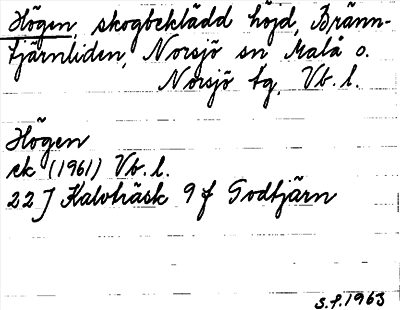 Högen, skogbeklädd höjd, Bränn-
tjärnliden, Norsjö sn Malå o.
Norsjö tg, Vb. l.
Högen
ek (1961) Vb. l.
22 J Kalvträsk 9 f Godtjärn
S.P. 1963